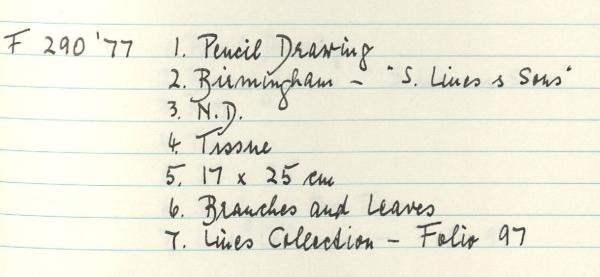 F 290 '77 1. Pencil Drawing
2. Birmingham - "S. Lines & Sons"
3. N.D.
4. Tissue
5. 17 x 25 cm
6. Branches and Leaves
7. Lines Collection - Folio 97